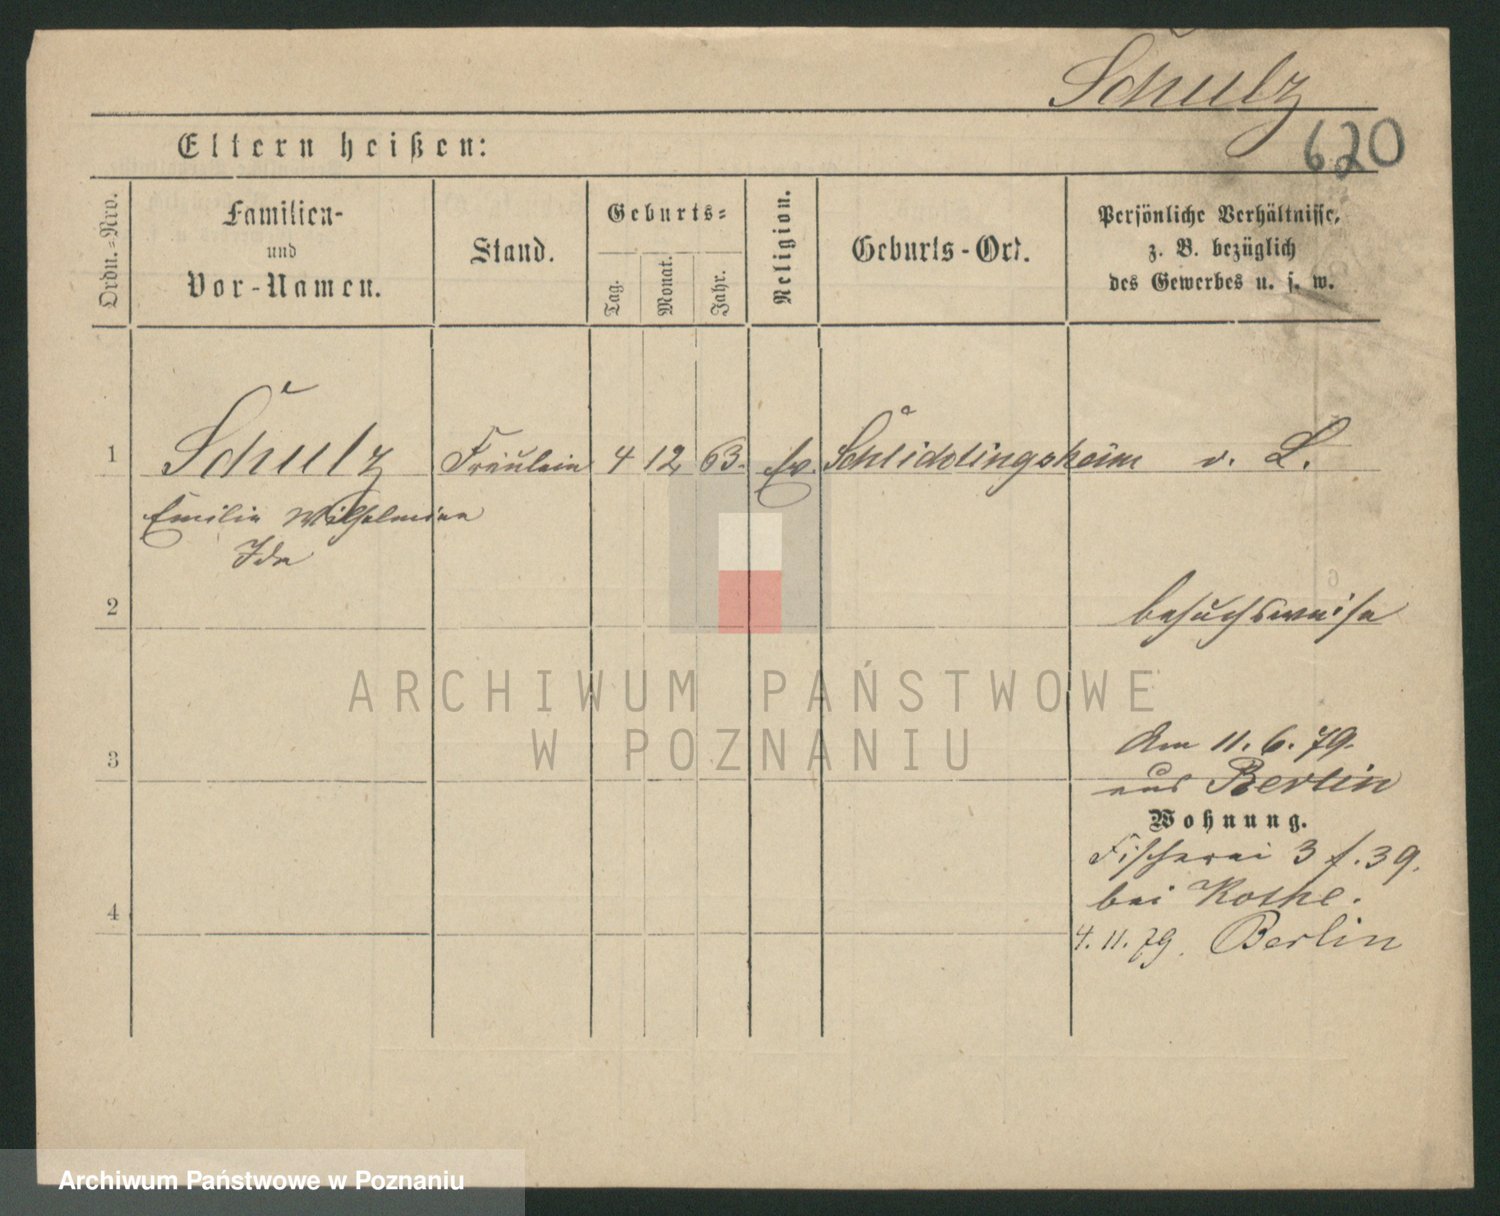 Schulz
620
Eltern heißen:
Ordn.=Nro.
Familien-
und
Vor-Namen.
Stand.
Geburts=
Tag.
Monat.
Jahr.
Religion.
Geburts-Ort.
Persönliche Verhältnisse,
z. B. bezüglich
des Gewerbes u. s. w.
1 Schulz Fräulein 4 12 63. Ev. Schlichtingsheim v. L.
Emilie Wilhelmine
Ida
2 besuchsweise
ARCHIWUM PAŃSTWOWE
W POZNANIU
Am 11. 6. 79.
3 aus Berlin
Wohnung.
Fischerei 3 f. 39.
bei Kothe.
4
4. 11. 79. Berlin
Archiwum Państwowe w Poznaniu